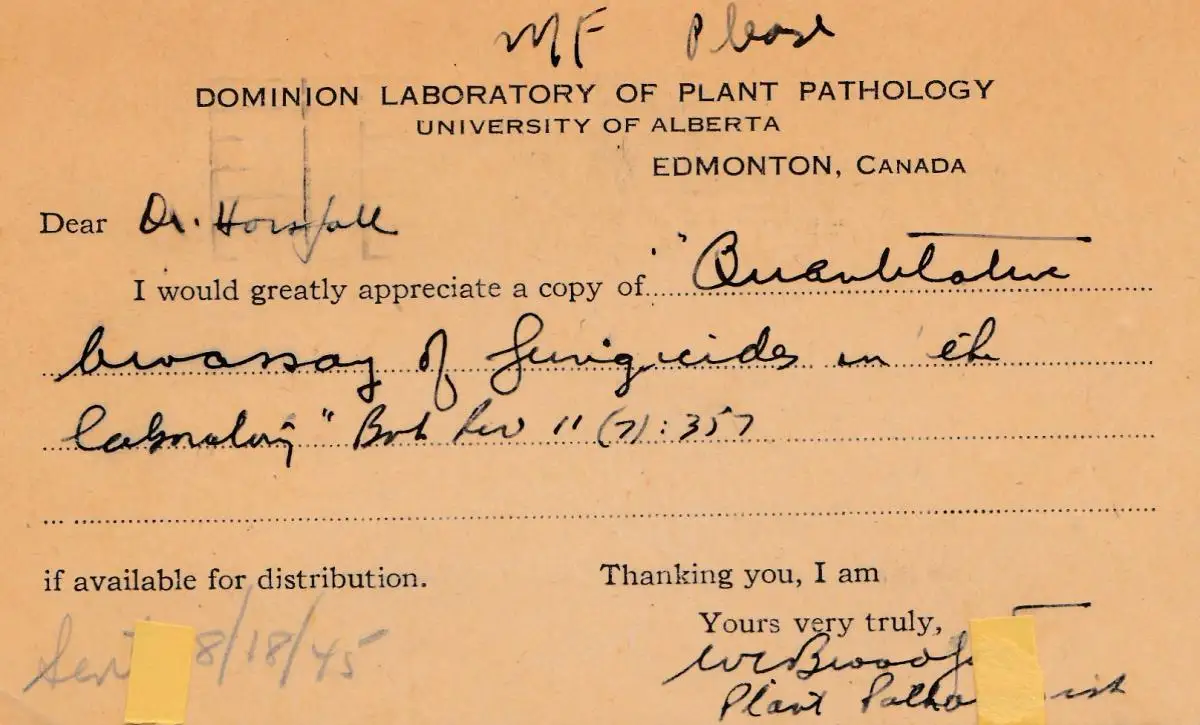 MF Please
DOMINION LABORATORY OF PLANT PATHOLOGY
UNIVERSITY OF ALBERTA
EDMONTON, CANADA
Dear Dr. Horsfall
I would greatly appreciate a copy of "Quantitative
bioassay of fungicides in the
laboratory" Bot Rev 11 (7): 357
if available for distribution. Thanking you, I am
Yours very truly,
Sent 8/18/45
Plant